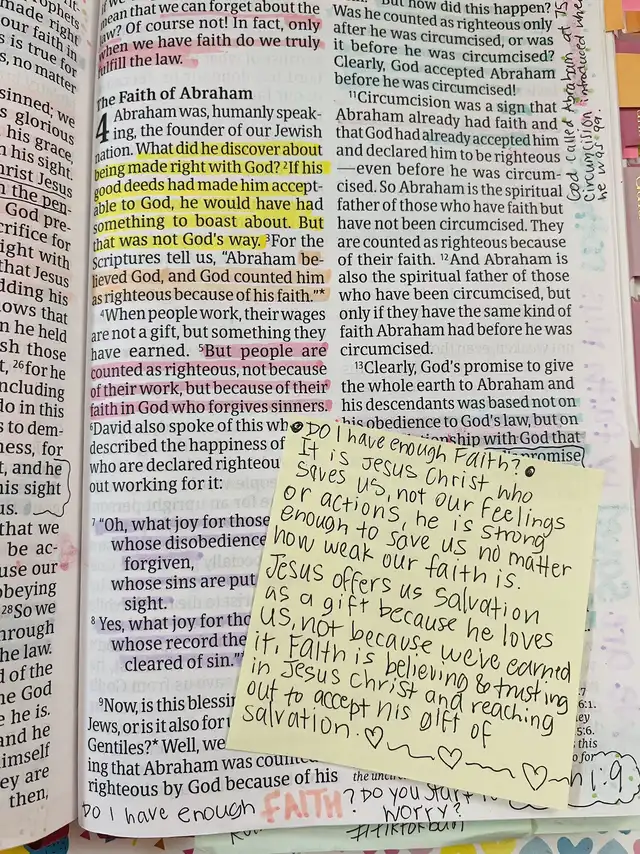 prophets
made right
our faith in
is true for
s, no matter
sinned; we
s glorious
his grace,
his sight.
rist Jesus
n the pen-
God pre-
crifice for
right with
that Jesus
dding his
ows that
n he held
sh those
t, 26for he
including
do in this
s to dem-
ness, for
t, and he
his sight
us.
that we
be ac-
use our
obeying
28So we
hrough
he law.
d of the
he God
e he is.
and he
imself
ey are
then,
mean that we can forget about the
law? Of course not! In fact, only
when we have faith do we truly
fulfill the law.
The Faith of Abraham
4 Abraham was, humanly speak-
ing, the founder of our Jewish
nation. What did he discover about
being made right with God? 2If his
good deeds had made him accept-
able to God, he would have had
something to boast about. But
that was not God's way. 3For the
Scriptures tell us, "Abraham be-
lieved God, and God counted him
as righteous because of his faith."*
4When people work, their wages
are not a gift, but something they
have earned. 5But people are
counted as righteous, not because
of their work, but because of their
faith in God who forgives sinners.
6David also spoke of this wh
described the happiness of
who are declared righteou
out working for it:
7 "Oh, what joy for those
whose disobedience
forgiven,
whose sins are put
sight.
8 Yes, what joy for tho
whose record the
cleared of sin."
9Now, is this blessin
Jews, or is it also for u
Gentiles?* Well, we
ing that Abraham was counted
righteous by God because of his
But how did this happen?
Was he counted as righteous only
after he was circumcised, or was
it before he was circumcised?
Clearly, God accepted Abraham
before he was circumcised!
11Circumcision was a sign that
Abraham already had faith and
that God had already accepted him
and declared him to be righteous
—even before he was circum-
cised. So Abraham is the spiritual
father of those who have faith but
have not been circumcised. They
are counted as righteous because
of their faith. 12And Abraham is
also the spiritual father of those
who have been circumcised, but
only if they have the same kind of
faith Abraham had before he was
circumcised.
13Clearly, God's promise to give
the whole earth to Abraham and
his descendants was based not on
his obedience to God's law, but on
relationship with God that
promise
God called Abraham at 75
Circumcision introduced when
he was 99.
Do I have enough Faith?
It is Jesus Christ who
saves us, not our feelings
or actions, he is strong
enough to save us no matter
how weak our faith is.
Jesus offers us salvation
as a gift because he loves
us, not because we've earned
it. Faith is believing & trusting
in Jesus Christ and reaching
out to accept his gift of
salvation.
the uncir
1:9
Do I have enough FAITH? Do you start
worry?
#tiktokban